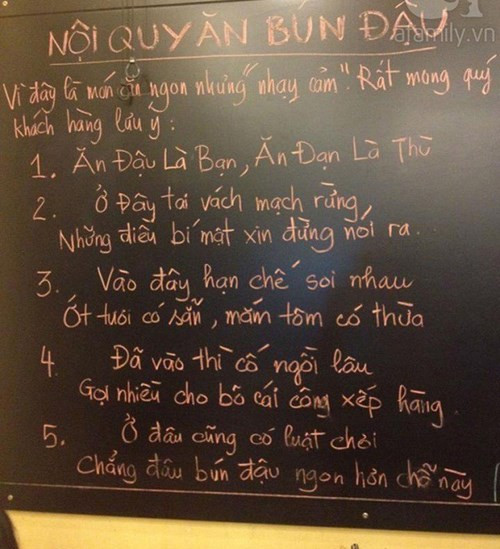 NỘI QUY ĂN BÚN ĐẬU
afamily.vn
Vì đây là món ăn ngon nhưng "nhạy cảm". Rất mong quý
khách hàng lưu ý:
1. Ăn Đậu Là Bạn, Ăn Đạn Là Thù
2. Ở Đây tai vách mạch rừng,
Những điều bí mật xin đừng nói ra.
3. Vào đây hạn chế soi nhau
Ớt tươi có sẵn, mắm tôm có thừa
4. Đã vào thì cố ngồi lâu
Gọi nhiều cho bõ cái công xếp hàng.
5. Ở đâu cũng có luật chơi
Chẳng đâu bún đậu ngon hơn chỗ này